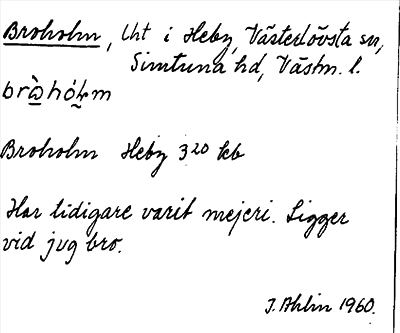 Broholm, Lht i Heby, Västerlövsta sn,
Simtuna hd, Västm. l.
Broholm Heby 320 kb
Har tidigare varit mejeri. Ligger
vid jvg bro.
J. Ahlin 1960.